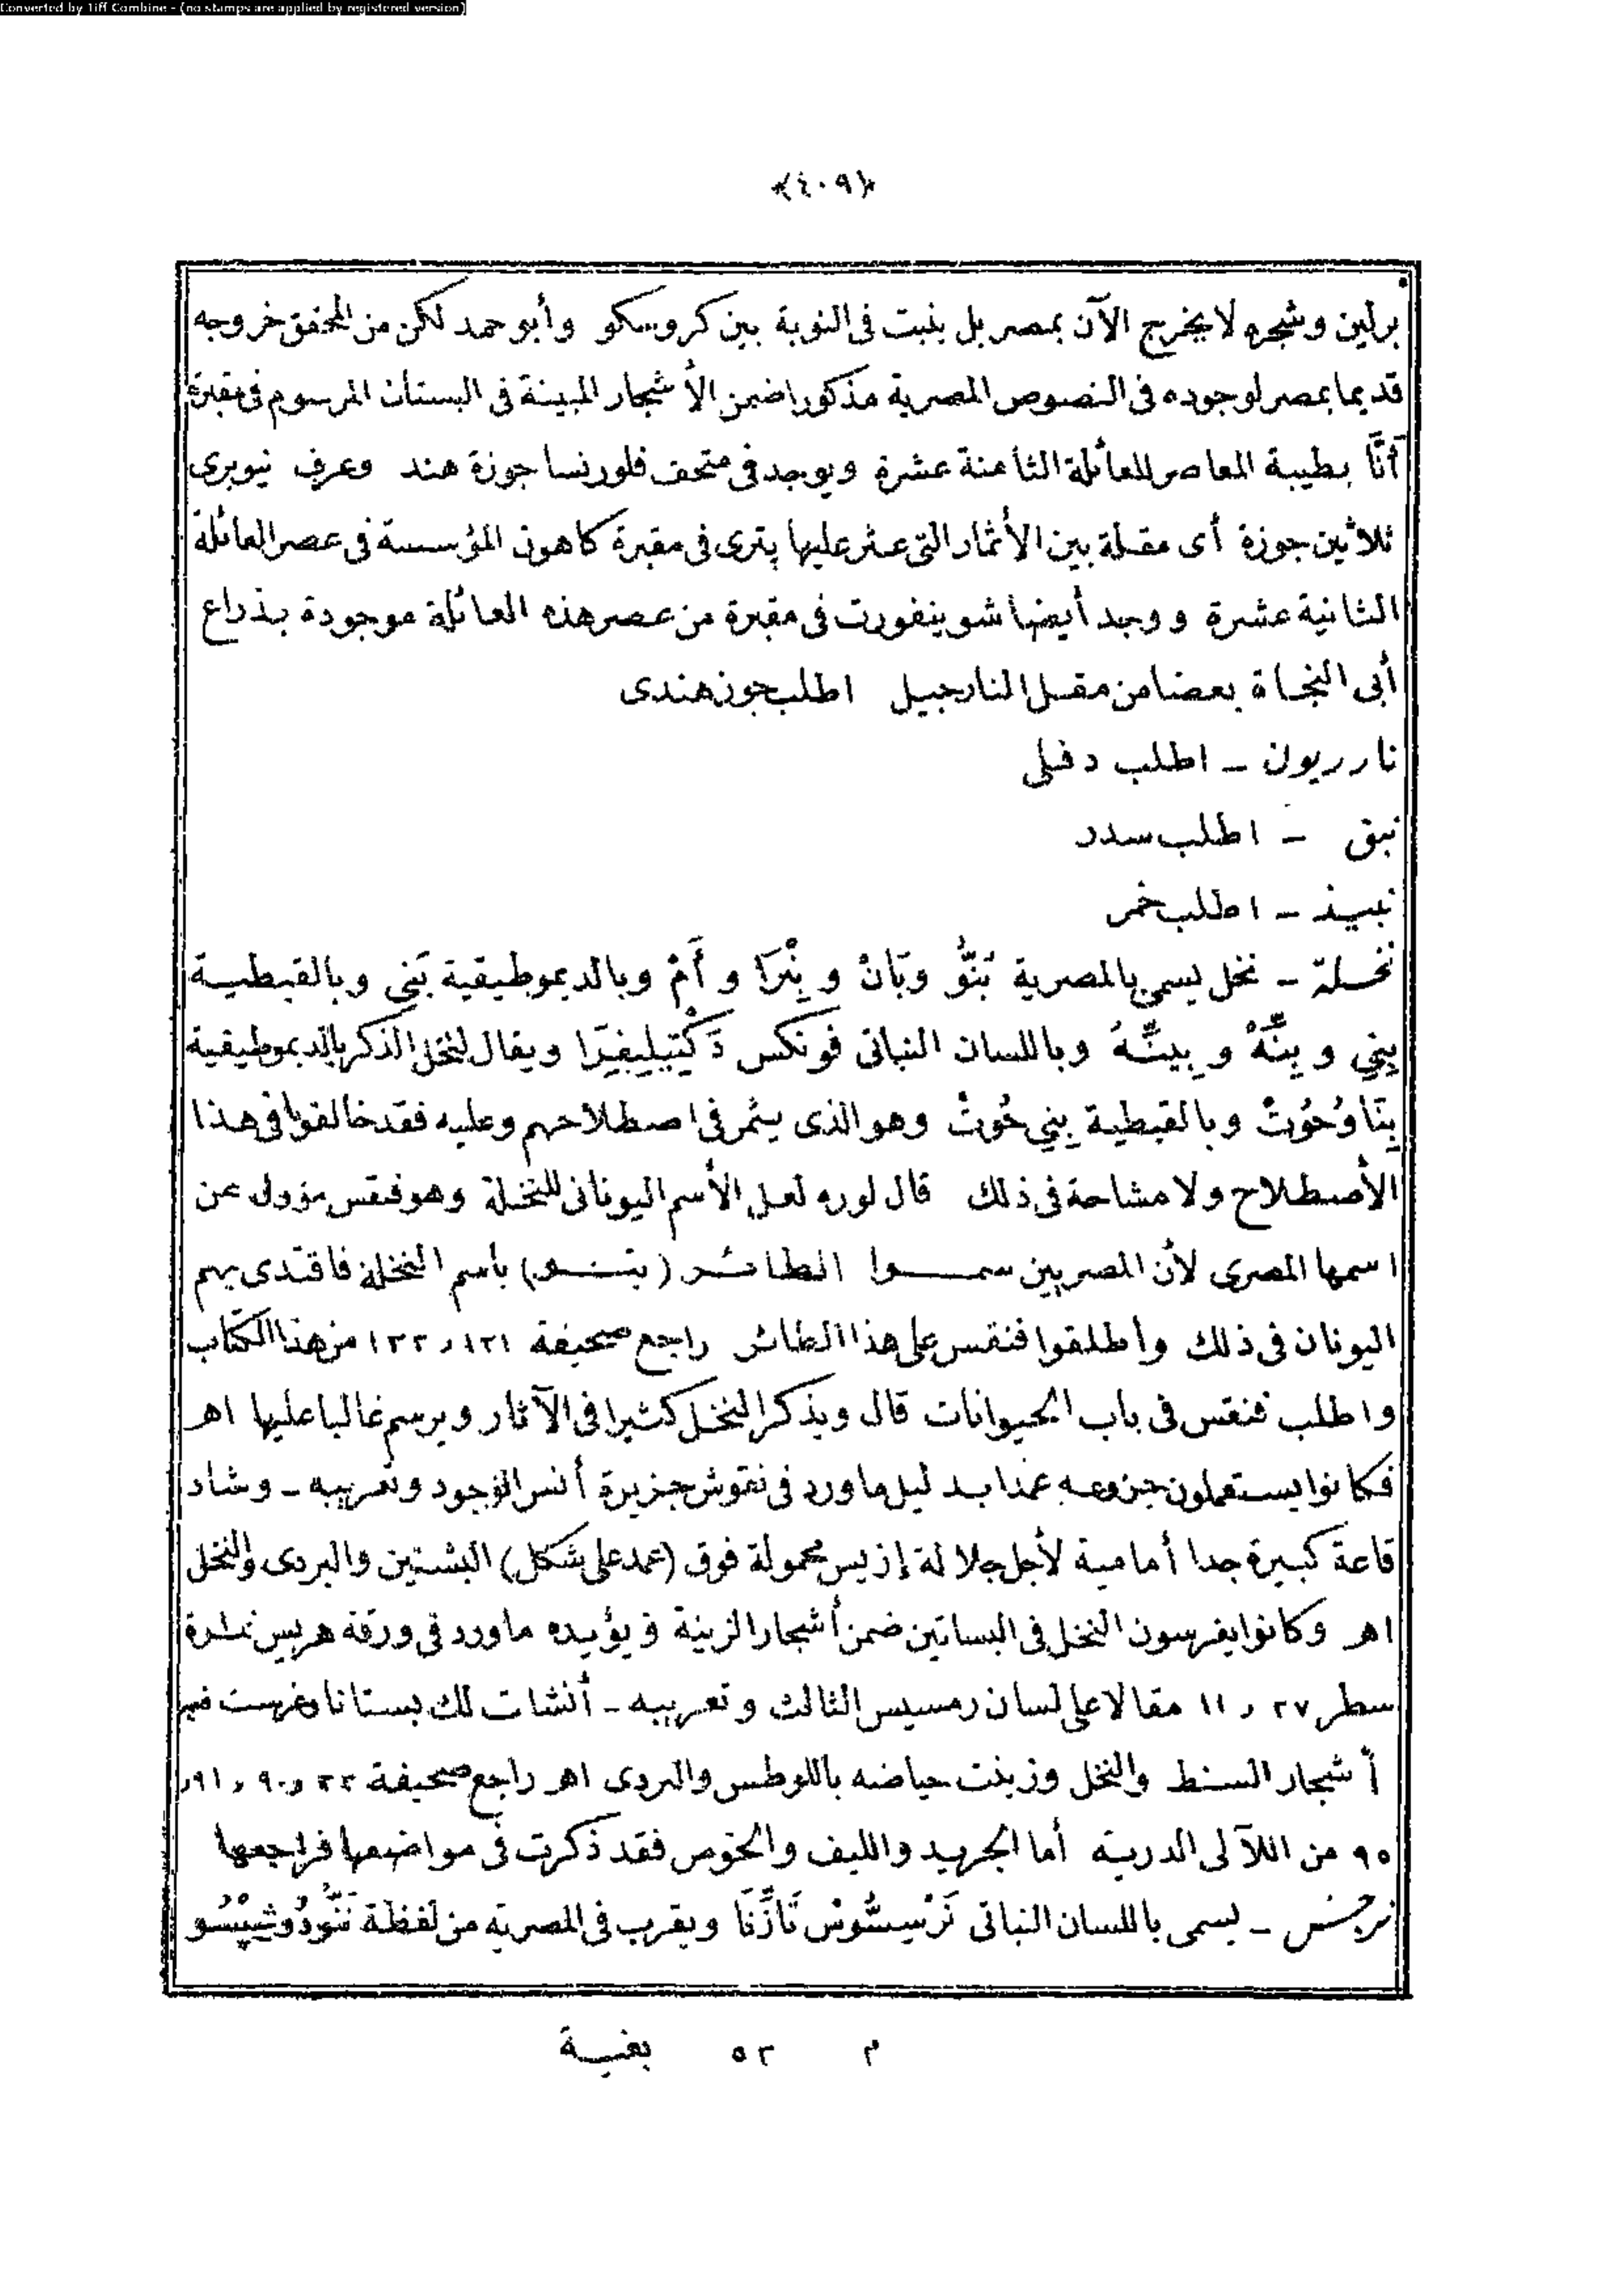 Converted by Tiff Combine - (no stamps are applied by registered version)
﴿٤٠٩﴾
برلين وشجره لا يخرج الآن بمصر بل ينبت فى النوبة بين كروسكو وأبو حمد لكن من المحقق خروجه
قديما بمصر لوجوده فى النصوص المصرية مذكورا ضمن الأشجار المبينة فى البستان المرسوم فى مقبرة
أنَّا بطيبة المعاصر للعائلة الثامنة عشرة ويوجد فى متحف فلورنسا جوزة هند وعرف نيوبرى
ثلاثين جوزة أى مقلة بين الأثمار التى عثر عليها پترى فى مقبرة كاهون المؤسسة فى عصر العائلة
الثانية عشرة ووجد أيضا شوينفورت فى مقبرة من عصر هذه العائلة موجودة بذراع
أبى النجاة بعضا من مقل النارجيل اطلب جوز هندى
ناردیون ـ اطلب دفلى
نبق ـ اطلب سدر
نبيذ ـ اطلب خمر
نخلة ـ نخل يسمى بالمصرية بَنُّو وبَانْ و بِنْرَا و أَمْ وبالديموطيقية بَنِي وبالقبطية
بِنِي و بِنَّهْ و بِينَّهُ وباللسان النباتى فونكس دَكْتِيلِيفِرَا ويقال لنخل الذكر بالديموطيقية
بِنَاوُحُوتْ وبالقبطية بِنِي حُوتْ وهو الذى يثمر فى اصطلاحهم وعليه فقد خالفوا فى هذا
الأصطلاح ولا مشاحة فى ذلك قال لوره لعل الأسم اليونانى للنخلة وهو فنقس مؤول عن
اسمها المصرى لأن المصريين سمـوا الطائـر (بنـو) بأسم النخلة فاقتدى بهم
اليونان فى ذلك وأطلقوا فنقس على هذا الطائر راجع صحيفة ١٢١ و ١٢٢ من هذا الكتاب
واطلب فنقس فى باب الحيوانات قال ويذكر النخل كثيرا فى الآثار ويرسم غالبا عليها اهـ
فكانوا يستعملون جزوعه عمدا بدليل ما ورد فى نقوش جزيرة أنس الوجود وتعريبه ـ وشاد
قاعة كبيرة جدا أمامية لأجل جلالة إزيس محمولة فوق (عمد على شكل) البشنين والبردى والنخل
اهـ وكانوا يغرسون النخل فى البساتين ضمن أشجار الزينة ويؤيده ما ورد فى ورقة هريس نمرة
سطر ٢٧ و ١١ مقالا على لسان رمسيس الثالث وتعريبه ـ أنشات لك بستانا وغرست فيه
أشجار السنط والنخل وزينت حياضه باللوطس والبردى اهـ راجع صحيفة ٢٢ و ٩٠ و ٩١ و
٩٥ من اللآلى الدرية أما الجريد والليف والخوص فقد ذكرت فى مواضعها فراجعها
نرجس ـ يسمى باللسان النباتى نَرْسِسُّوسْ تَازِّتَا ويقرب فى المصرية من لفظة
م ٥٢ بغية